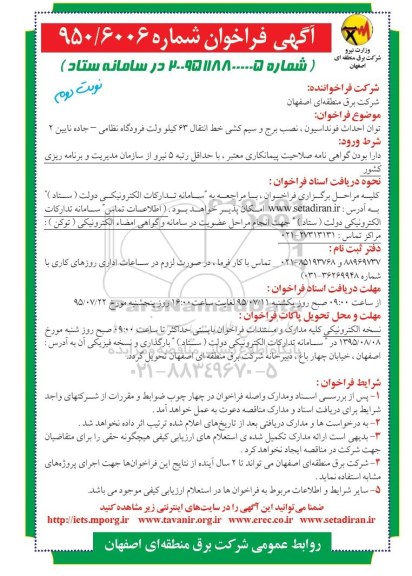 آگهی فراخوان شماره ۹۵۰/۶۰۰۶
( شماره ۲۰۰۹۵۱۱۸۸۰۰۰۰۰۵ در سامانه ستاد )
وزارت نیرو
شرکت برق منطقه ای
اصفهان
نوبت دوم
شرکت فراخواننده:
شرکت برق منطقه‌ای اصفهان
موضوع فراخوان:
توان احداث فونداسیون ، نصب برج و سیم کشی خط انتقال ۶۳ کیلو ولت فرودگاه نظامی – جاده نایین ۲
شرط ورود:
دارا بودن گواهی نامه صلاحیت پیمانکاری معتبر ، با حداقل رتبه ۵ نیرو از سازمان مدیریت و برنامه ریزی
کشور
نحوه دریافت اسناد فراخوان :
کلیه مراحل برگزاری فراخوان ، با مراجعه به "سامانه تدارکات الکترونیکی دولت ( ستاد )"
به آدرس : www.setadiran.ir امکان پذیر خواهد بود . ( اطلاعات تماس" سامانه تدارکات
الکترونیکی دولت ( ستاد ) " جهت انجام مراحل عضویت در سامانه و گواهی امضاء الکترونیکی ( توکن ) :
مراکز تماس : ۲۷۳۱۳۱۳۱-۰۲۱
دفتر ثبت نام :
۸۸۹۶۹۷۳۷ و ۸۵۱۹۳۷۶۸-۰۲۱ تماس با کار فرما ، در صورت لزوم در ساعات اداری روزهای کاری با
شماره ۳۶۲۶۹۹۴۸-۰۳۱)
مهلت دریافت اسناد فراخوان :
از ساعت ۰۹:۰۰ صبح روز یکشنبه ۹۵/۰۷/۱۱ لغایت ساعت ۱۶:۰۰ روز پنجشنبه مورخ ۹۵/۰۷/۲۲
مهلت و محل تحویل پاکات فراخوان :
نسخه الکترونیکی کلیه مدارک و مستندات فراخوان بایستی حداکثر تا ساعت ۰۹:۰۰ صبح روز شنبه مورخ
۱۳۹۵/۰۸/۰۸ در " سامانه تدارکات الکترونیکی دولت ( ستاد ) " بارگذاری و نسخه فیزیکی آن به آدرس :
اصفهان ، خیابان چهار باغ ، دبیرخانه شرکت برق منطقه ای اصفهان تحویل گردد.
۰۲۱-۸۸۳۴۹۶۷۰-۵
شرایط فراخوان :
۱- پس از بررسی اسناد ومدارک واصله فراخوان در چهار چوب ضوابط و مقررات از شرکتهای واجد
شرایط برای دریافت اسناد و مدارک مناقصه دعوت به عمل خواهد آمد .
۲- به درخواست ها و مدارک دریافتی بعد از تاریخ‌های اعلام شده ترتیب اثر داده نخواهد شد .
۳- بدیهی است ارائه مدارک تکمیل شده ی استعلام های ارزیابی کیفی هیچگونه حقی را برای متقاضیان
جهت شرکت در مناقصه ایجاد نخواهد کرد .
۴- شرکت برق منطقه‌ای اصفهان می تواند تا ۲ سال آینده از نتایج این فراخوان‌ها جهت اجرای پروژه‌های
مشابه استفاده نماید .
۵- سایر شرایط و اطلاعات مربوط به فراخوان ها در استعلام ارزیابی کیفی موجود می باشد.
ضمنا می‌توانید این آگهی را در سایت‌های اینترنتی زیر مشاهده کنید
http://iets.mporg.ir www.tavanir.org.ir www.erec.co.ir www.setadiran.ir
روابط عمومی شرکت برق منطقه‌ای اصفهان